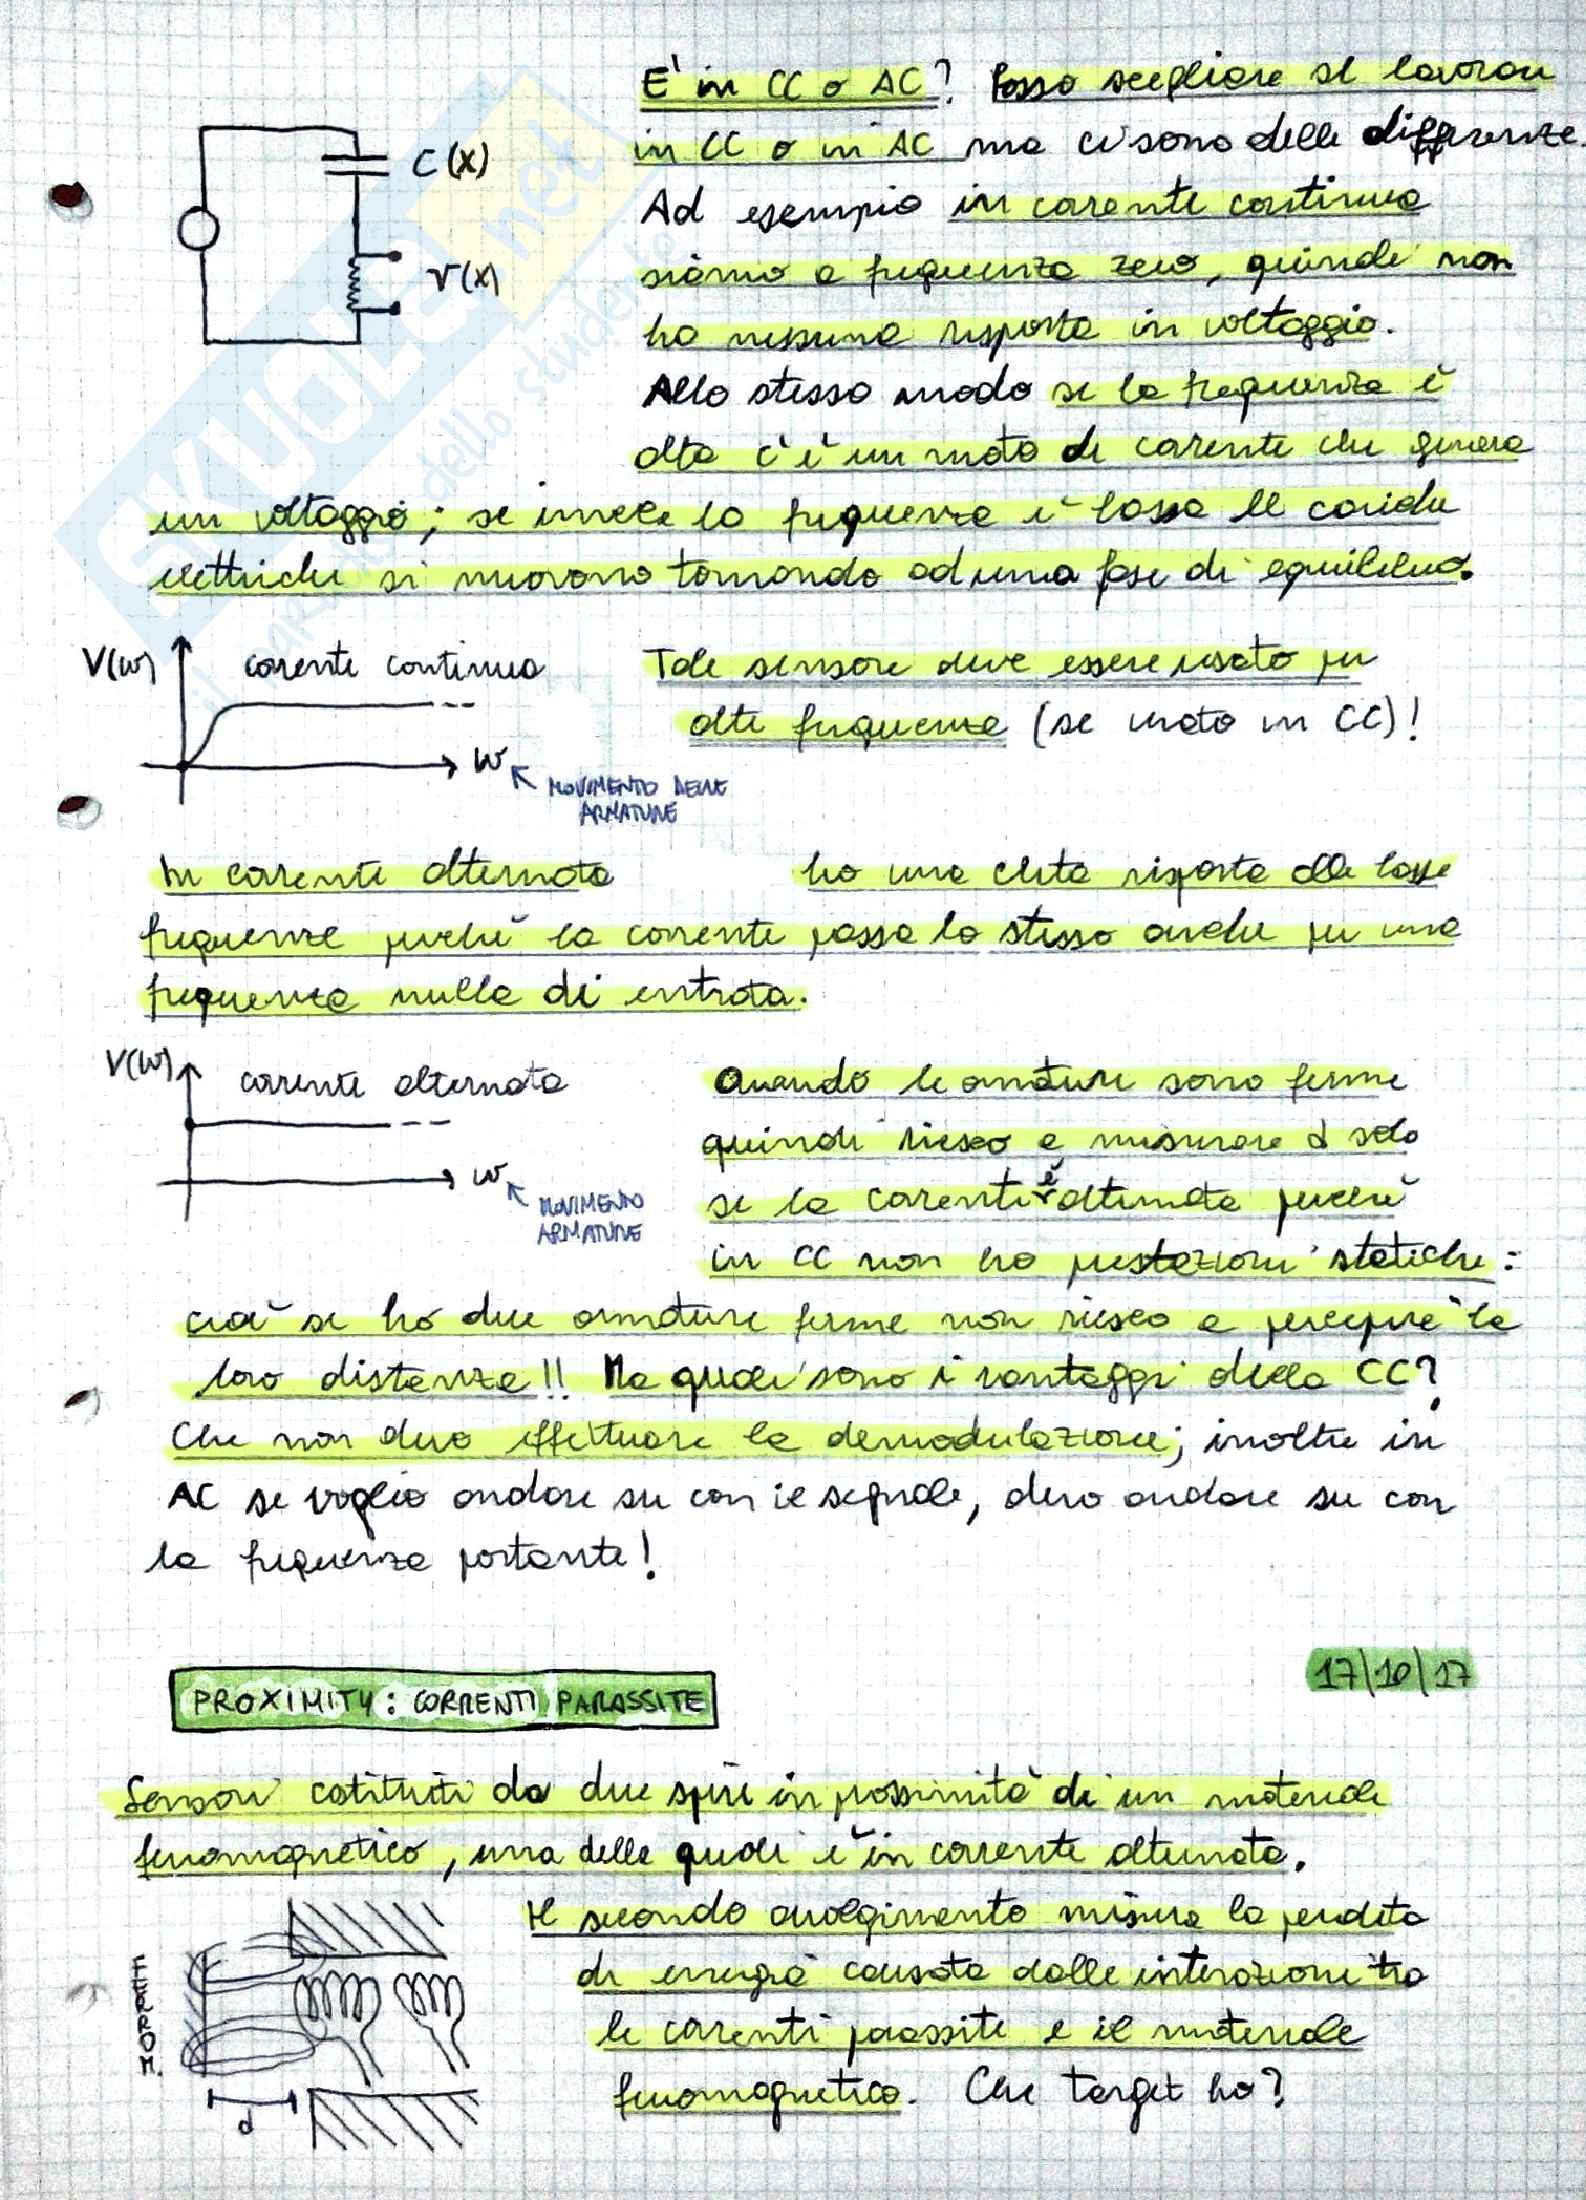 E' in CC o AC? Posso scegliere se lavorare
in CC o in AC ma ci sono delle differenze.
Ad esempio in corrente continua
siamo a frequenza zero, quindi non
ho nessuna risposta in voltaggio.
Allo stesso modo se la frequenza è
alta c'è un moto di corrente che genera
un voltaggio; se invece la frequenza è bassa le cariche
elettriche si muovono tornando ad una fase di equilibrio.
C(x)
V(x)
V(w) corrente continua
w
MOVIMENTO DELLE
ARMATURE
Tale sensore deve essere usato per
alte frequenze (se usato in CC)!
In corrente alternata ho una certa risposta alle basse
frequenze perchè la corrente passa lo stesso anche per una
frequenza nulla di entrata.
V(w) corrente alternata
w
MOVIMENTO
ARMATURE
Quando le armature sono ferme
quindi riesco a misurare d solo
se la corrente è alternata perchè
in CC non ho prestazioni statiche:
cioè se ho due armature ferme non riesco a percepire la
loro distanza!! Ma quali sono i vantaggi della CC?
Che non devo effettuare la demodulazione; inoltre in
AC se voglio andare su con il segnale, devo andare su con
la frequenza portante!
17/10/17
PROXIMITY: CORRENTI PARASSITE
Sensori costituiti da due spire in prossimità di un materiale
ferromagnetico, una delle quali è in corrente alternata.
Il secondo avvolgimento misura la perdita
di energia causata dalle interazioni tra
le correnti parassite e il materiale
ferromagnetico. Che target ho?
d
SKUOLA.net
dello studente